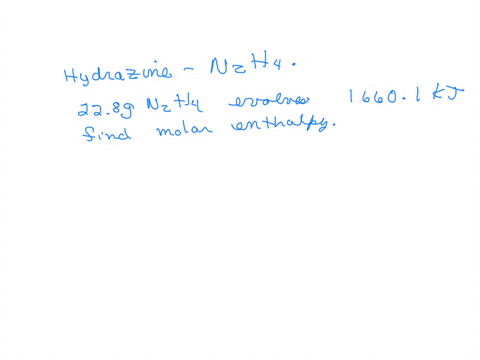 Hydrazine - N2H4.
22.8g N2H4 evolves 1660.1 KJ
find molar enthalpy.